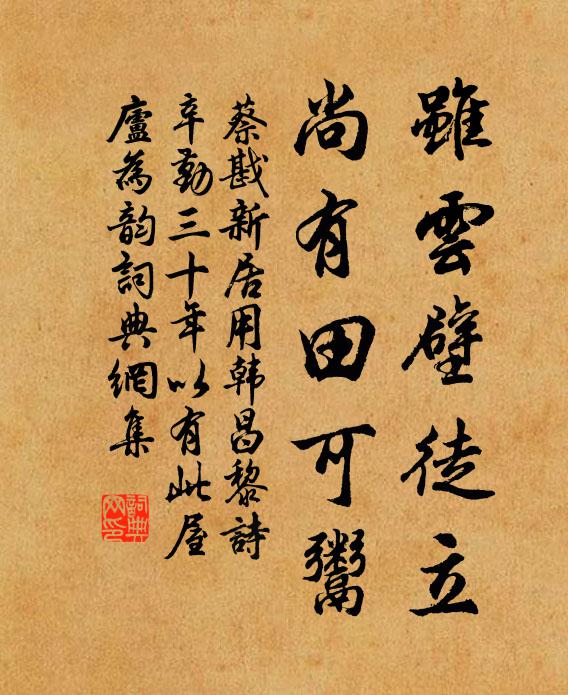 雖雲壁徒立
尚有田可鬻
蔡戡新居用韩昌黎詩
辛勤三十年以有此屋
廬為韵詞典網集
詞典網印